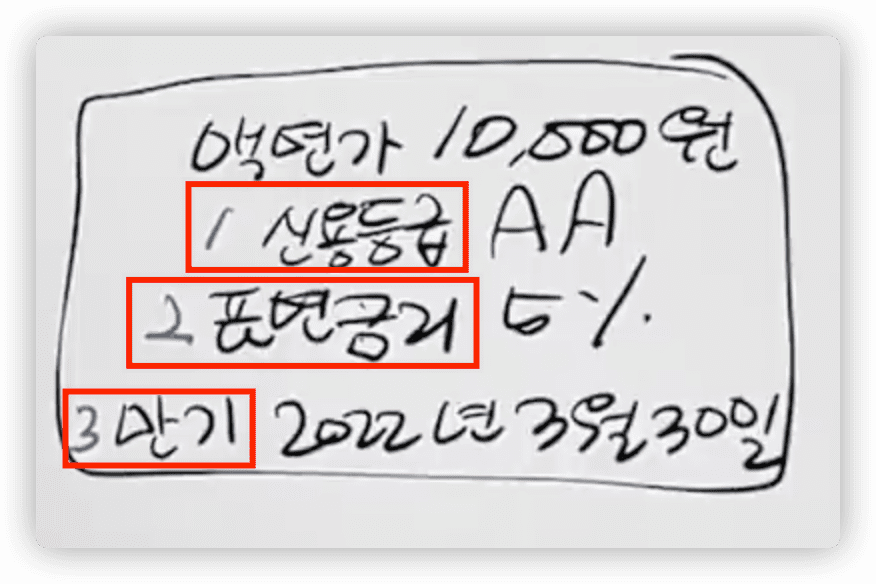 액면가 10,000원
1 신용등급 AA
2 표면금리 5%.
3 만기 2022년 3월 30일